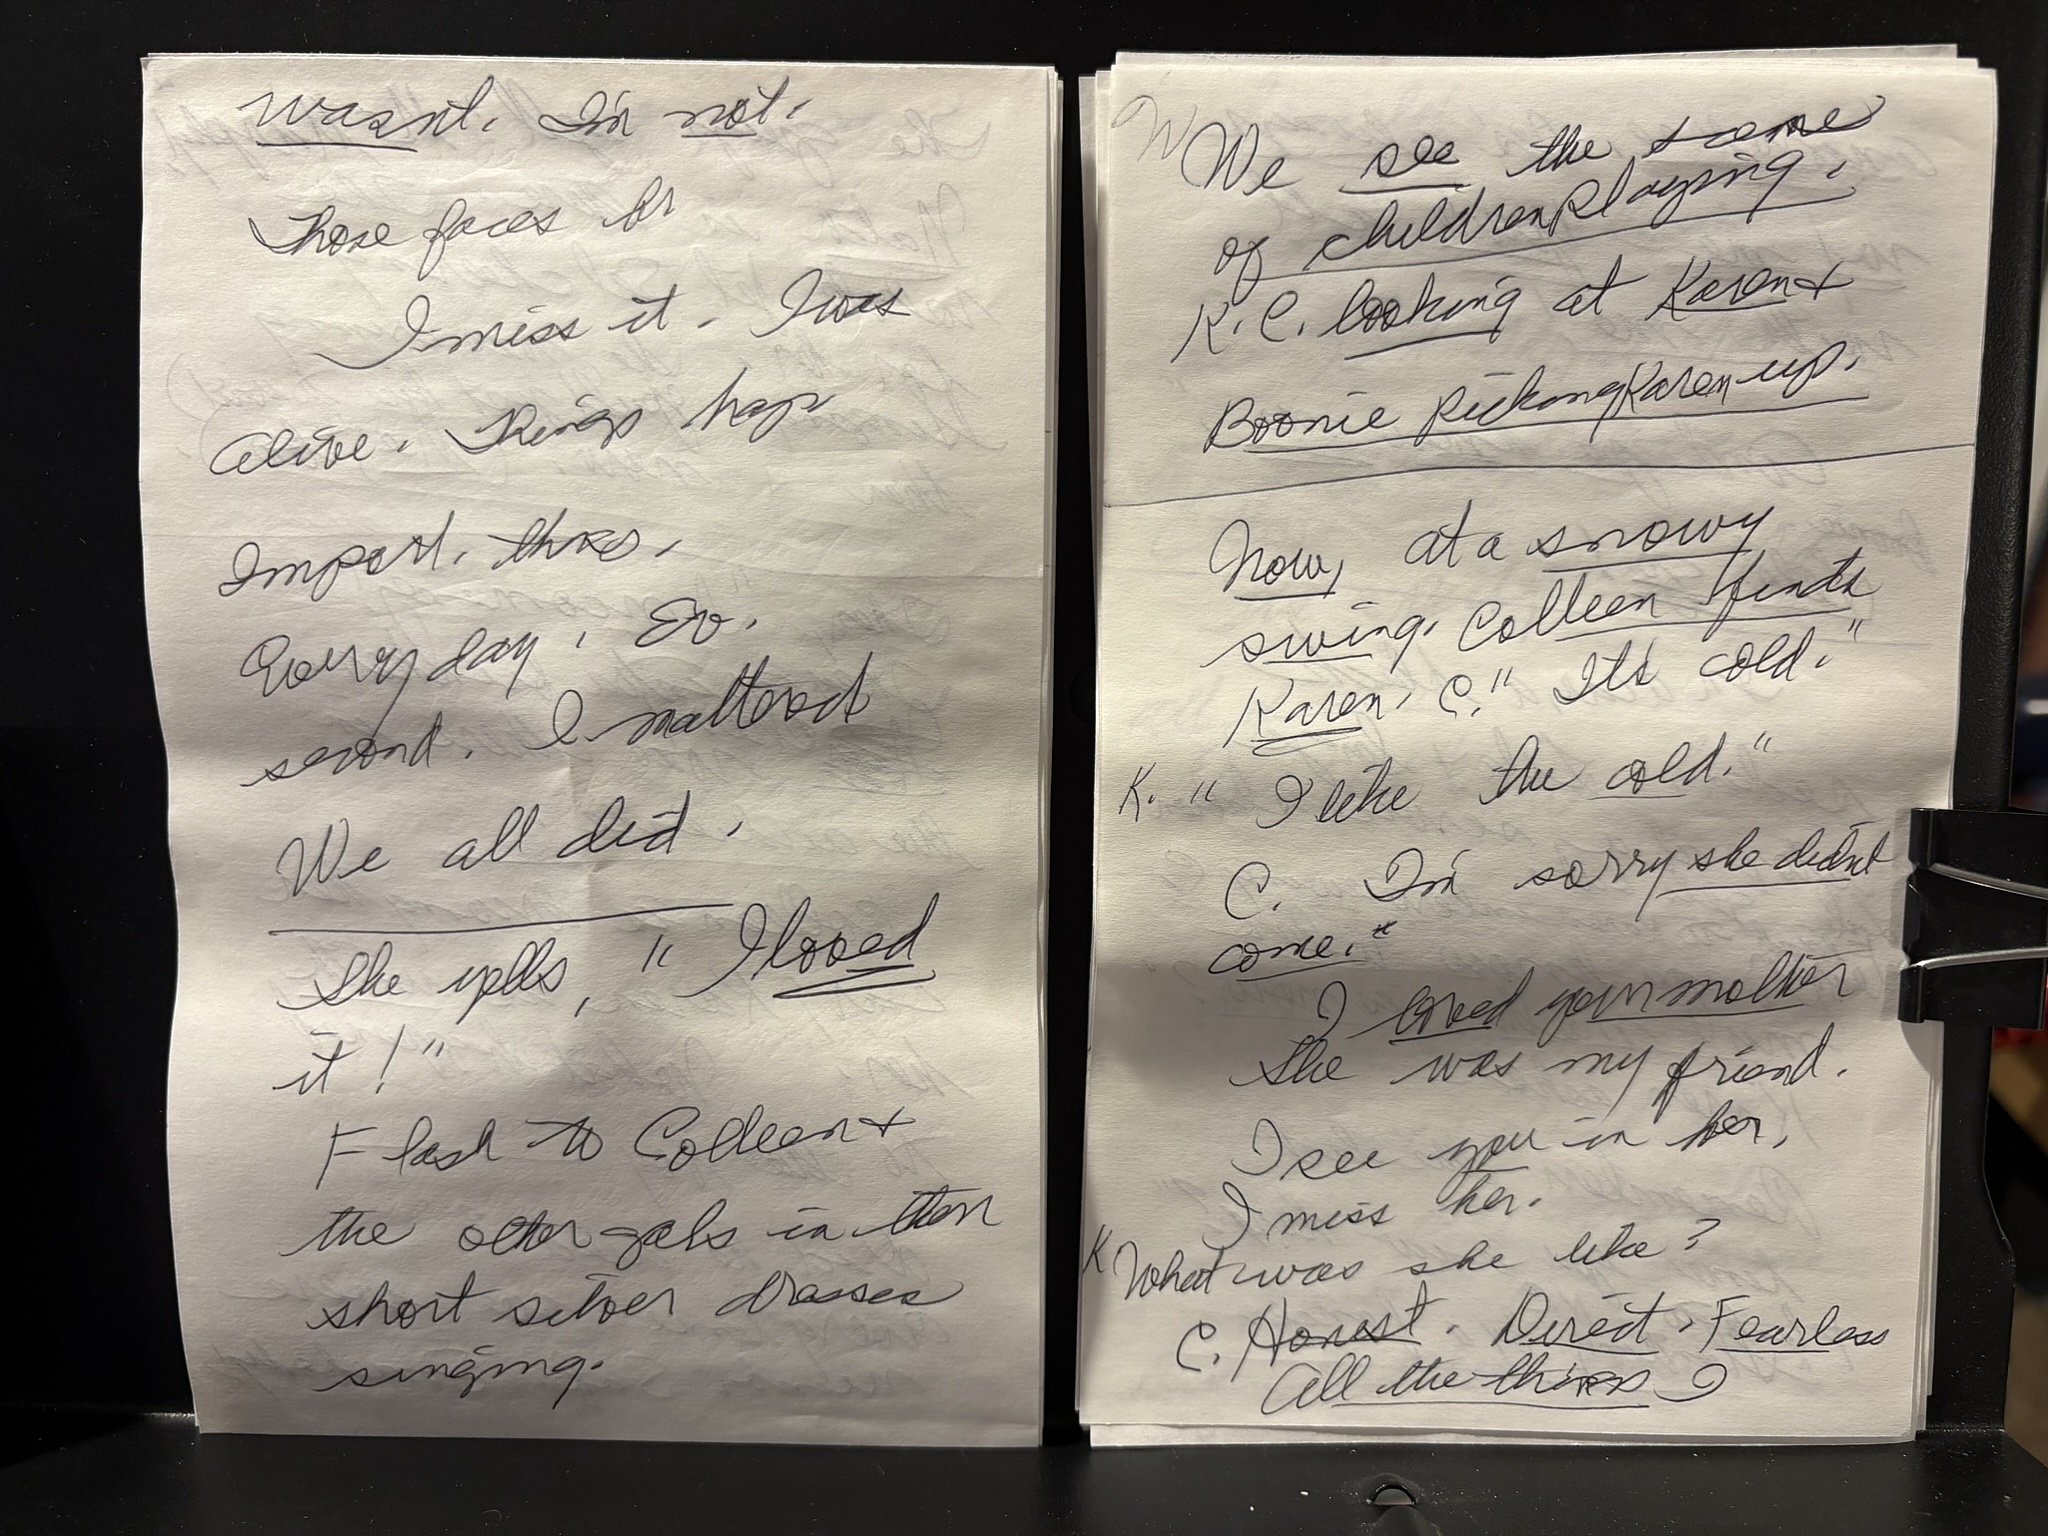 wasn't. I'm not.
Those faces br
I miss it. I was
alive. Things hap.
Import. thxs.
Every day. Ev.
second. I mattered
We all did.
She yells, " I loved
it!"
Flash to Colleen &
the other gals in their
short silver dresses
singing.
We see the scene
of children playing.
K.C. looking at Karen &
Boonie picking Karen up.
Now, at a snowy
swing. Colleen finds
Karen. C." It's cold."
K. " I like the cold."
C. I'm sorry she didn't
come."
I loved your mother
She was my friend.
I see you in her.
I miss her.
K What was she like?
C. Honest. Direct. Fearless
All the things I